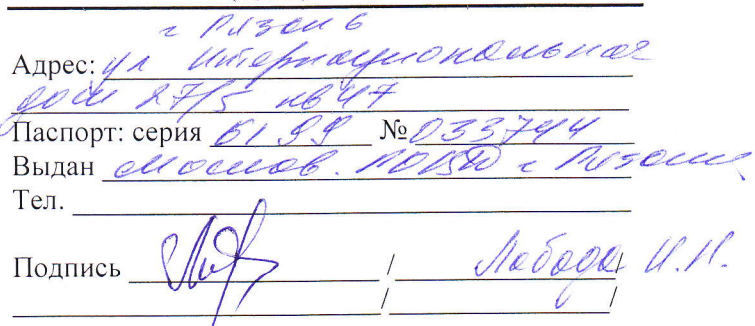 г Рязань
Адрес: ул Интернациональная
дом 27/5 кв 47
Паспорт: серия 6199 № 033744
Выдан Москов. РОВД г Рязани
Тел.
Подпись / Лобода И.И.
/ /